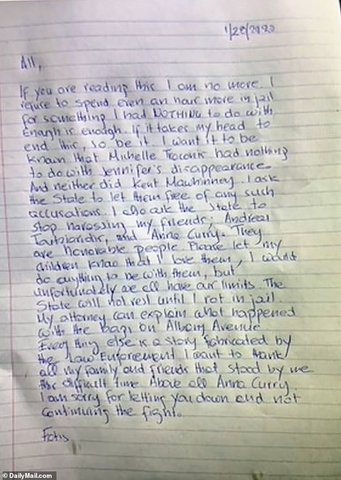 1/28/2020
All,
If you are reading this I am no more. I
refuse to spend even an hour more in jail
for something I had NOTHING to do with
Enough is enough. If it takes my head to
end this, so be it. I want it to be
known that Michelle Troconis had nothing
to do with Jennifer's disappearance.
And neither did Kent Mawhinney. I ask
the State to let them free of any such
accusations. I also ask the State to
stop harassing my friends, Andreas
Toutziaridis, and Anna Curry. They
are honorable people. Please let my
children know that I love them, I would
do anything to be with them, but
unfortunately we all have our limits. The
State will not rest until I rot in jail.
My attorney can explain what happened
with the bags on Albany Avenue.
Everything else is a story fabricated by
the Law Enforcement. I want to thank
all my family and friends that stood by me
this difficult time. Above all Anna Curry.
I am sorry for letting you down and not
continuing the fight.
Fotis
© DailyMail.com